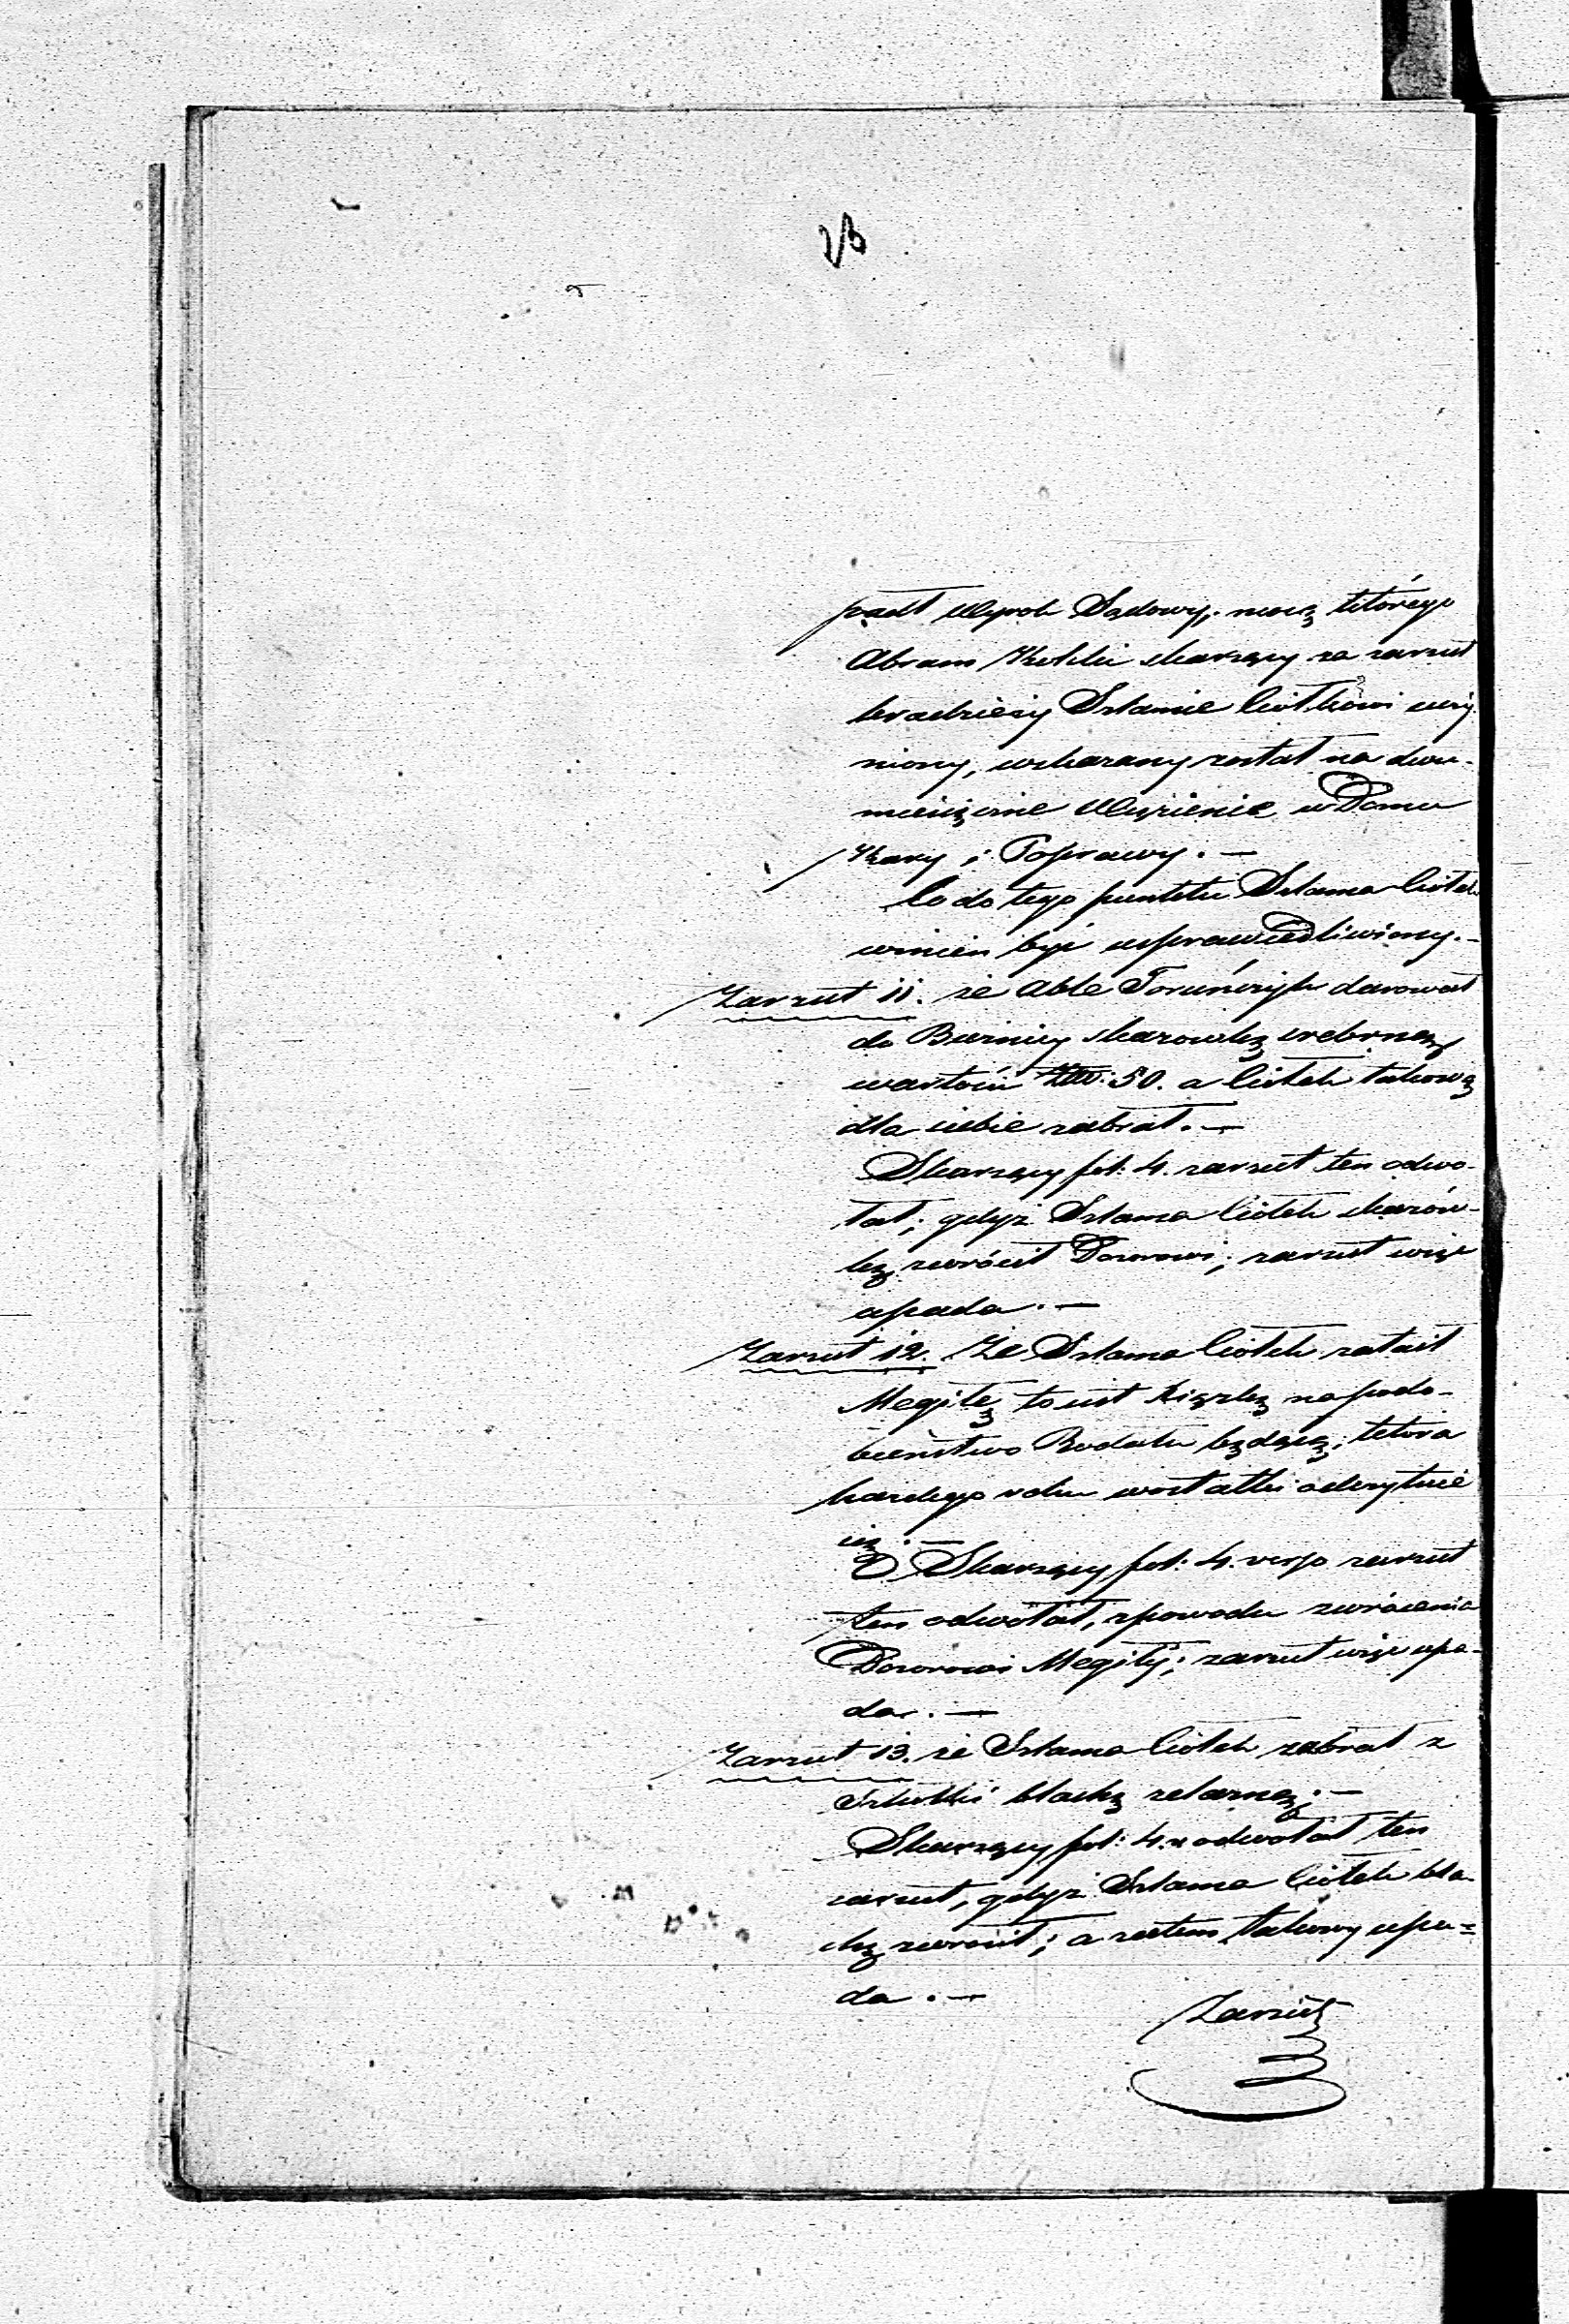 padł Wyrok Sądowy, mocą którego
Abram Kolski skarżący za zarzut
kradzieży Szlamie Ciołkowi uczy-
niony, wskazany został na dwu-
miesięczne Więzienie w Domu
Kary i Poprawy. —
Co do tego punktu Szlama Ciołek
winien być usprawiedliwiony. —
Zarzut 11. że Able Toruńczyk darował
do Bużnicy skarbowkę srebrną
wartości Złł: 50. a Ciołek takową
dla siebie zabrał. —
Skarżący fol: 4. zarzut ten odwo-
łał; gdyż Szlama Ciołek skarbów-
kę zwrócił Dozorowi; zarzut więc
upada. —
Zarzut 12. Że Szlama Ciołek zataił
Megilę to jest Książkę na podo-
bieństwo Rodału będącą; która
każdego roku w ostatki odczytuje
się. —
Skarżący fol: 4. verso zarzut
ten odwołał, z powodu zwrócenia
Dozorowi Megily; zarzut więc upa-
da. —
Zarzut 13. że Szlama Ciołek zabrał z
Szkółki blachę żelazną. —
Skarżący fol: 4. v odwołał ten
zarzut, gdyż Szlama Ciołek bla-
chę zwrócił; a zatem takowy upa=
da. —
Zarzut